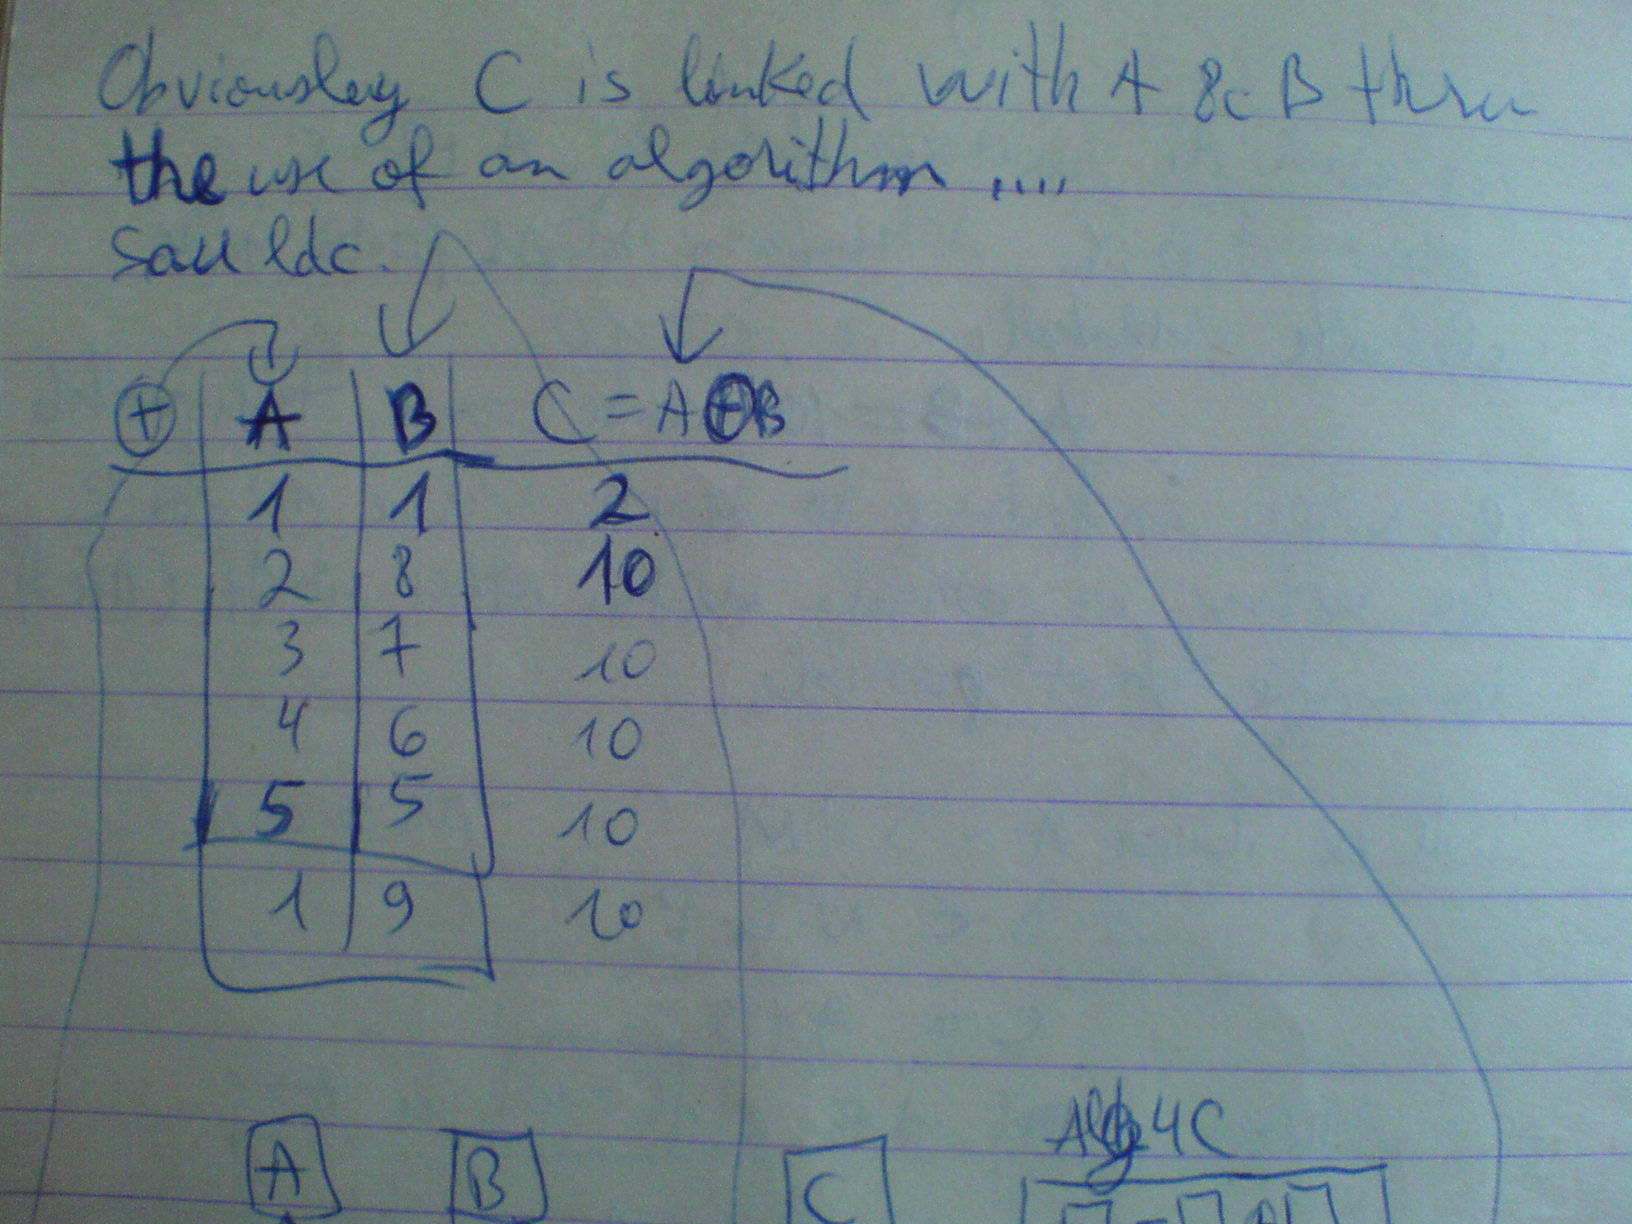 Obviousley C is linked with A & B thru
the use of an algorithm ....
⊕ A B C = A ⊕ B
1 1 2
2 8 10
3 7 10
4 6 10
5 5 10
1 9 10
4C
A B C